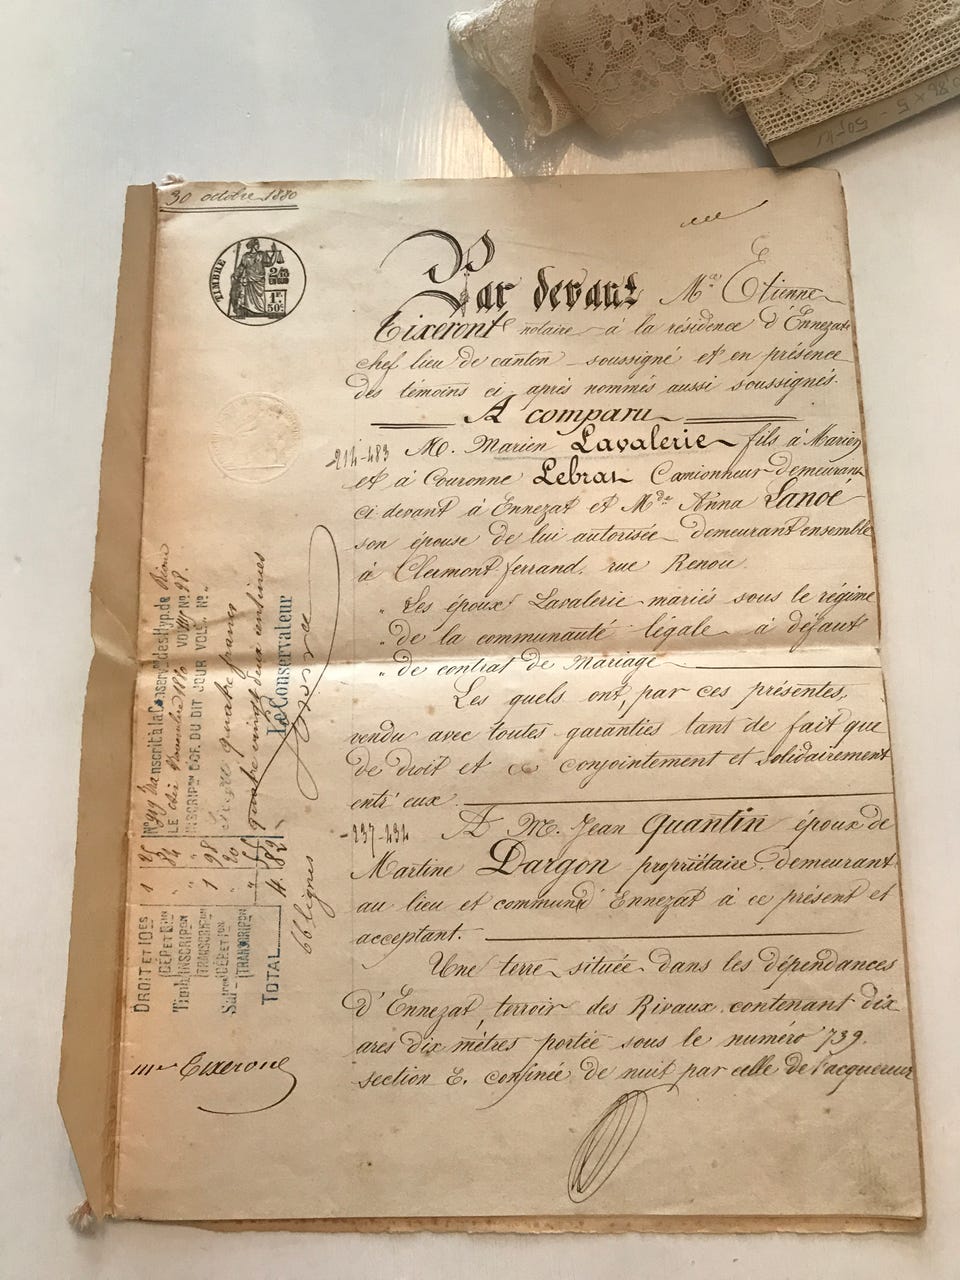 30 octobre 1880
TIMBRE
1F. 50c
Par devant Me Etienne
Tixeront notaire à la résidence d'Ennezat
chef lieu de canton soussigné et en présence
des témoins ci après nommés aussi soussignés.
A comparu
214-483 M. Marien Lavalerie fils à Marien
et à Couronne Lebrat Camionneur demeurant
ci devant à Ennezat et Mde Anna Lanoé
son épouse de lui autorisée demeurant ensemble
à Clermont ferrand, rue Renou
" Les époux Lavalerie mariés sous le régime
" de la communauté légale à défaut
" de contrat de Mariage
Les quels ont, par ces présentes,
vendu avec toutes garanties tant de fait que
de droit et ce conjointement et solidairement
entr'eux.
237-434 A M. Jean Quantin époux de
Martine Dargon propriétaire demeurant
au lieu et commune d'Ennezat à ce présent et
acceptant.
Une terre située dans les dépendances
d'Ennezat, terroir des Rivaux contenant dix
ares dix mètres portée sous le numéro 739.
section E. confinée de nuit par celle de l'acquereur
No 919 Transcrit à la Conservon des Hyp. de Riom
LE 1880 VOL No 28.
INSCRIPon D'OF. DU DIT JOUR VOL. " No "
quatre francs
quatre vingt deux centimes
Le Conservateur
DROIT ET 10ES
DÉP ET BUN
INSCRIPON
TRANSCRIPON
DÉP ET ION
TRANSCRIPON
TOTAL 4.82
66 lignes
Me Tixeront